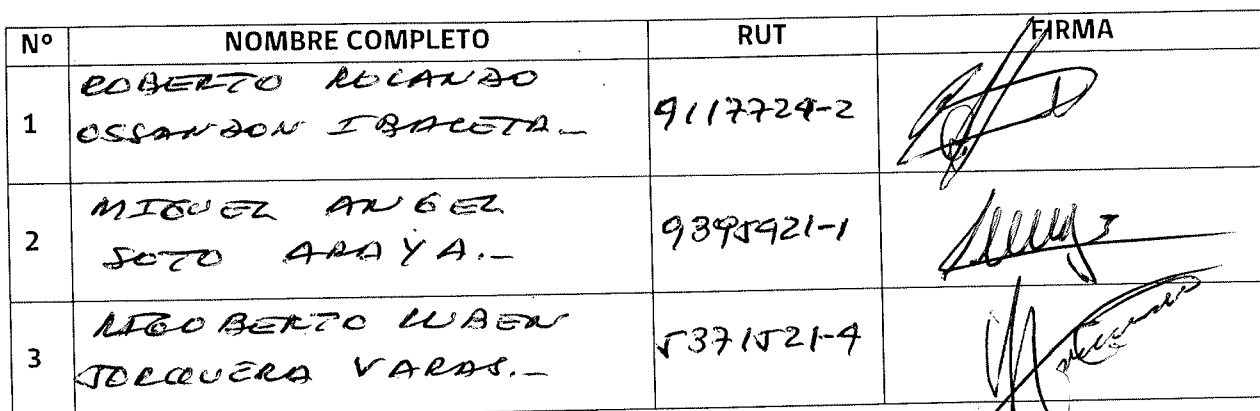 Nº NOMBRE COMPLETO RUT FIRMA
ROBERTO ROLANDO
1 OSSANDON IBACETA._ 9117724-2
MIGUEL ANGEL
2 SOTO ARAYA._ 9395921-1
RIGOBERTO RUBEN
3 JORQUERA VARAS._ 5371521-4